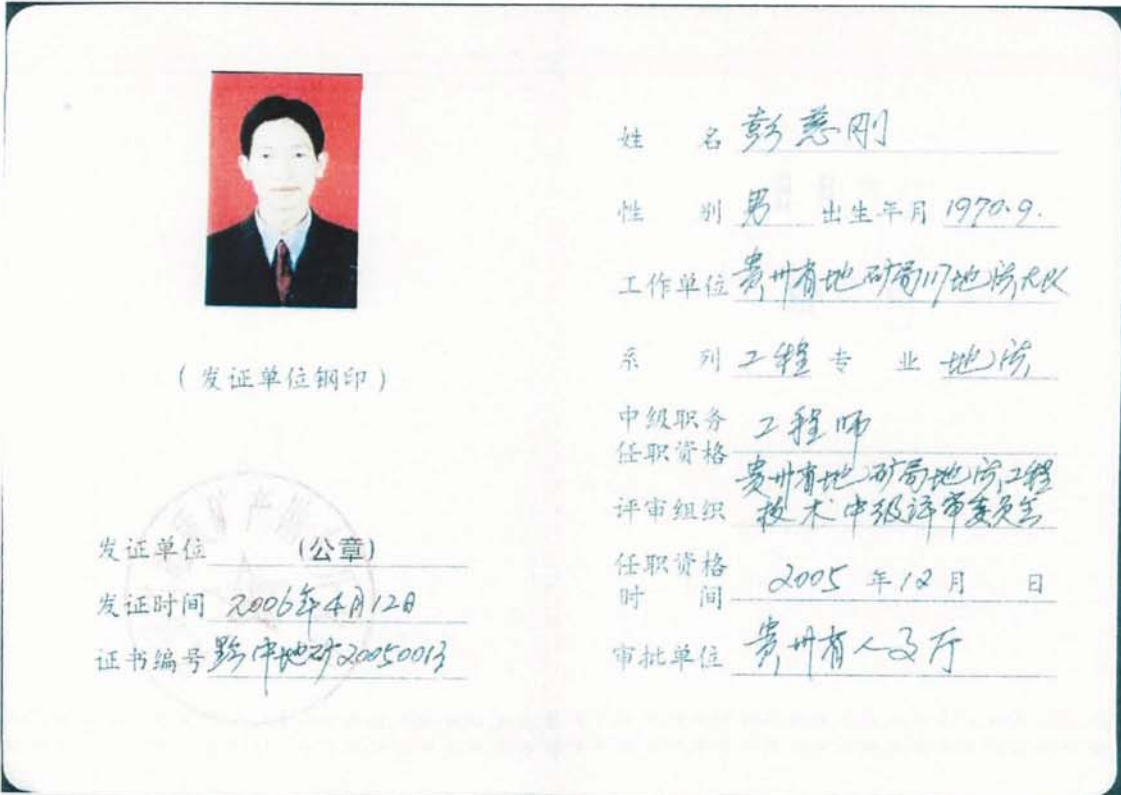 (发证单位钢印)
发证单位 (公章)
发证时间 2006年4月12日
证书编号 黔中地矿20050013
姓 名 彭慈刚
性 别 男 出生年月 1970.9.
工作单位 贵州省地矿局117地质大队
系 列 工程 专 业 地质
中级职务
任职资格 工程师
贵州省地矿局地质工程
评审组织 技术中级评审委员会
任职资格
时 间 2005 年 12 月 日
审批单位 贵州省人事厅